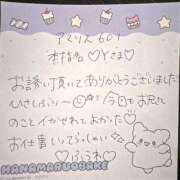 アイリス601
本指名♡Yさま♡
お誘い頂いてありがとうございました!
今日もお兄さん
のこといかせれてよかった♡
お仕事いってらっしゃい
♡ふうわ♡
HANAMARUOBAKE